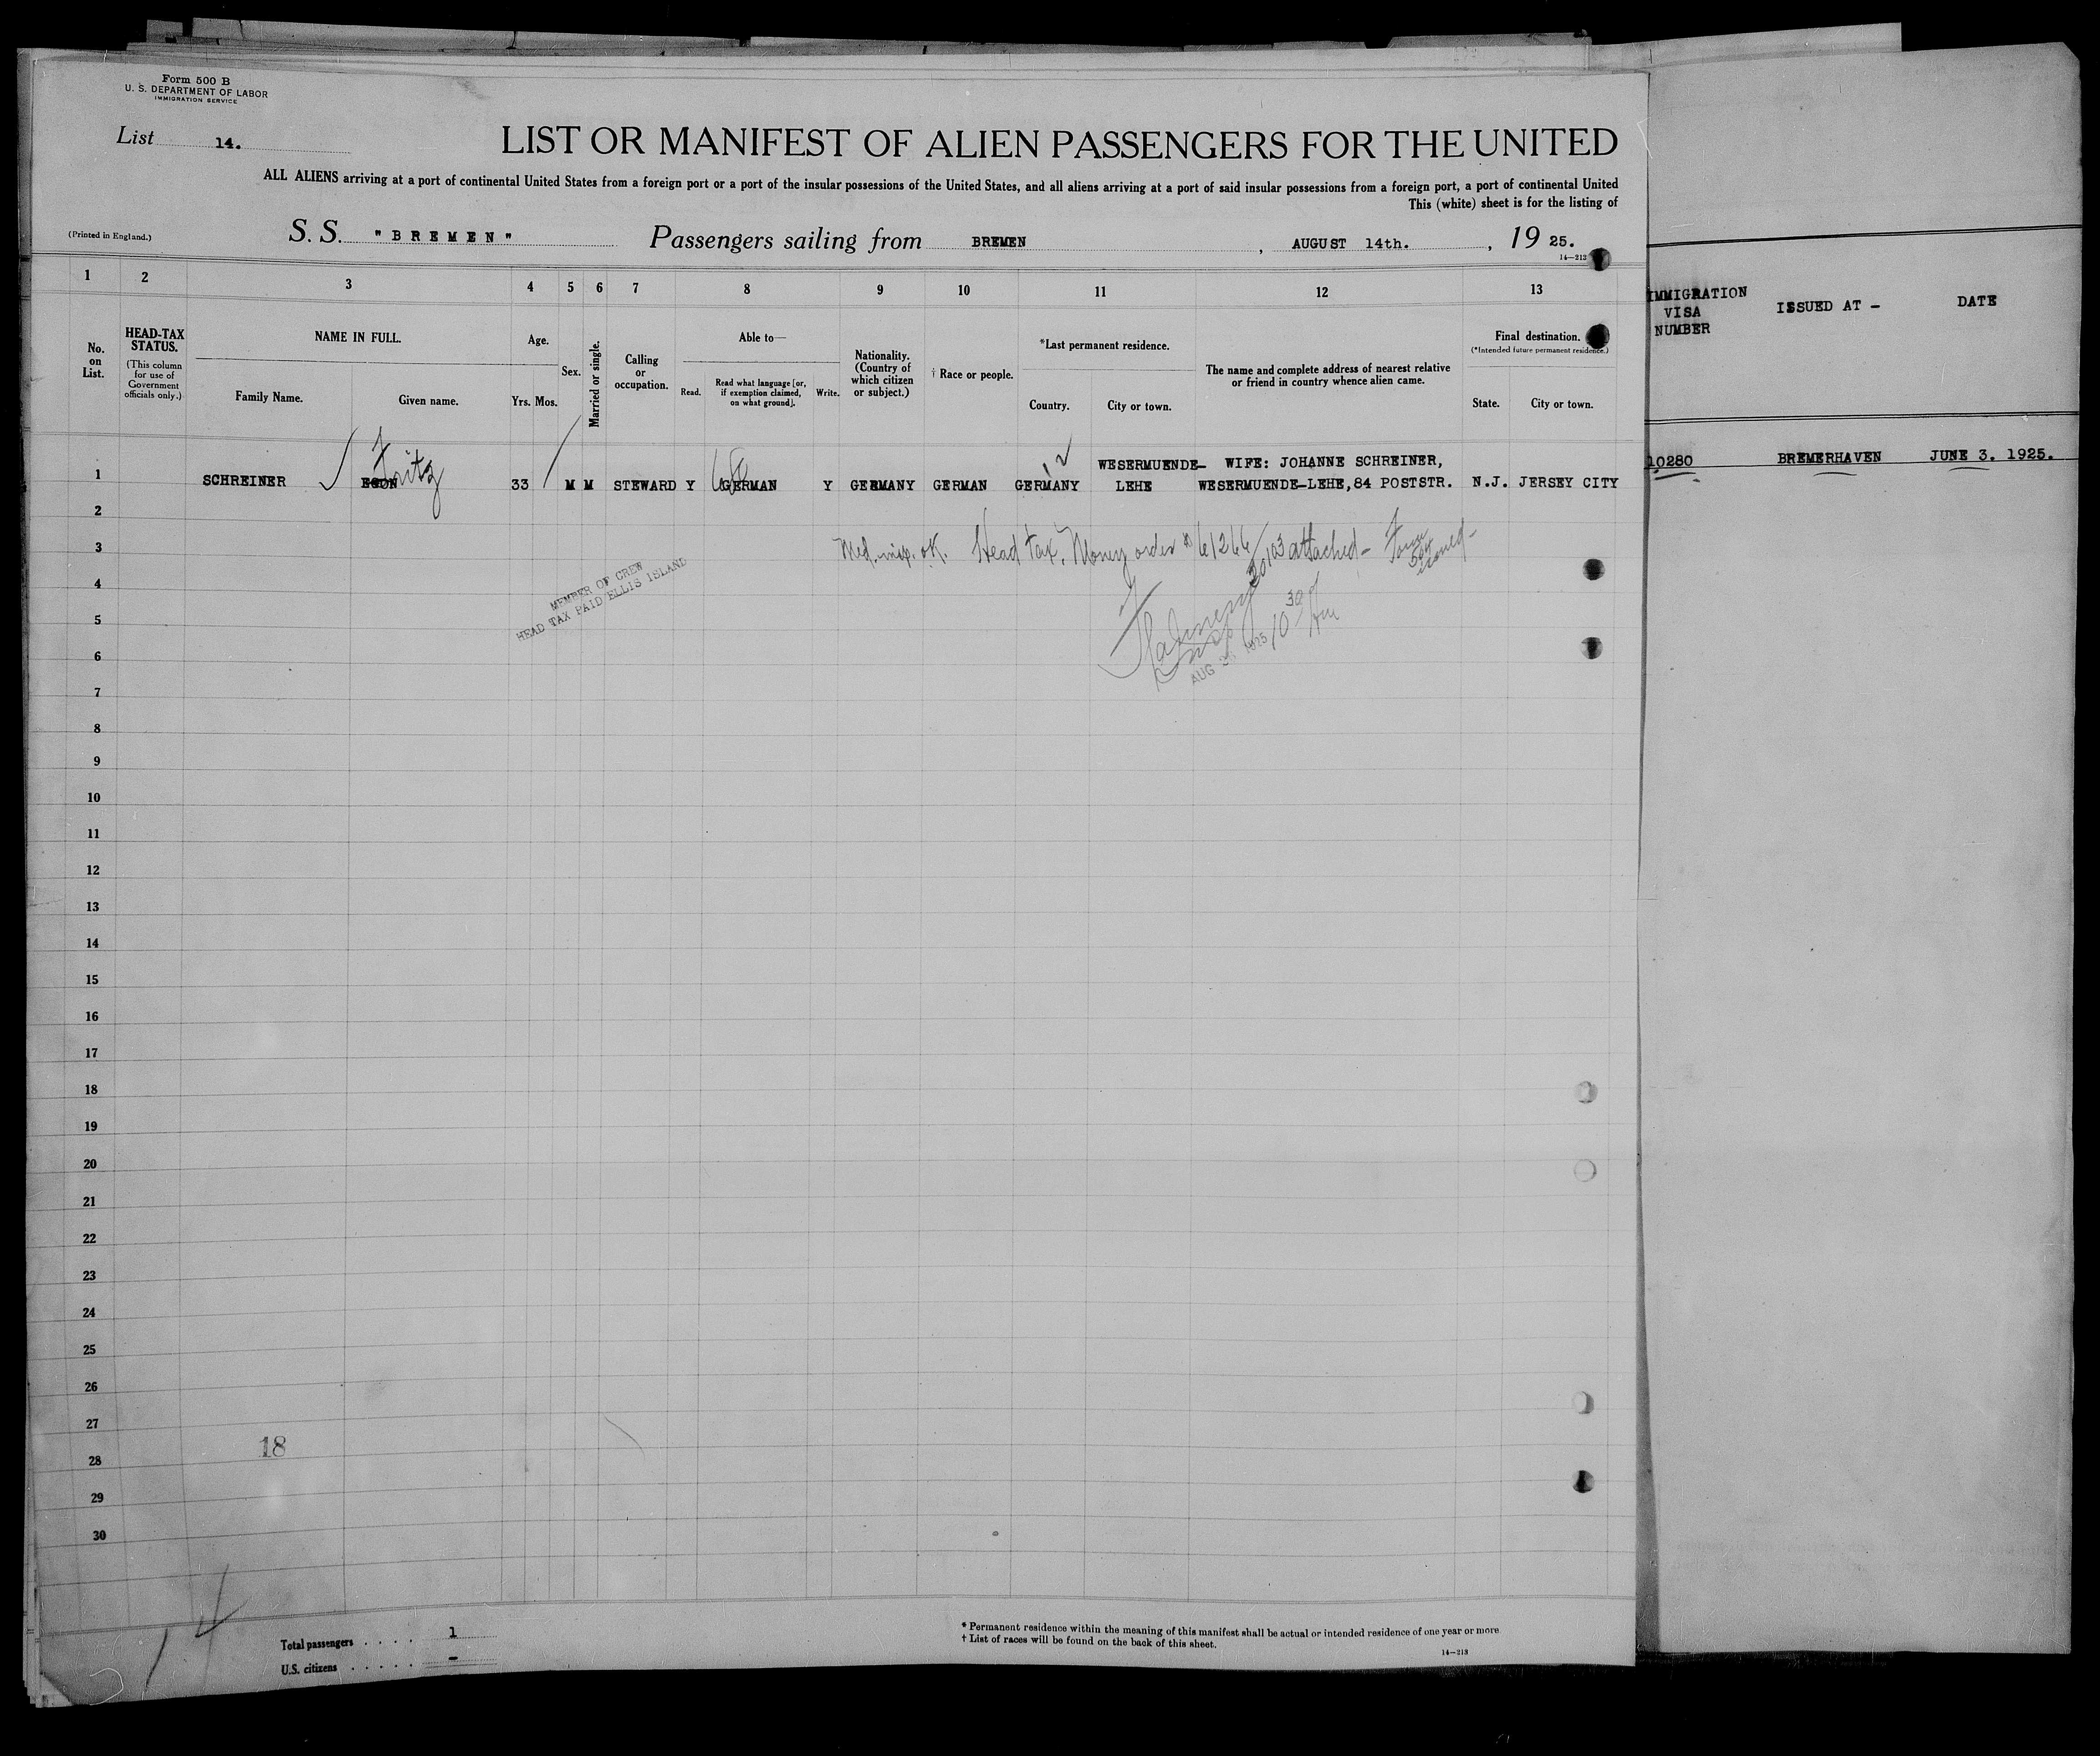 Form 500 B
U. S. DEPARTMENT OF LABOR
IMMIGRATION SERVICE
List 14.
LIST OR MANIFEST OF ALIEN PASSENGERS FOR THE UNITED
ALL ALIENS arriving at a port of continental United States from a foreign port or a port of the insular possessions of the United States, and all aliens arriving at a port of said insular possessions from a foreign port, a port of continental United
This (white) sheet is for the listing of
(Printed in England.)
S. S. "BREMEN" Passengers sailing from BREMEN, AUGUST 14th., 1925.
14—213
1 2 3 4 5 6 7 8 9 10 11 12 13
No. on List.
HEAD-TAX STATUS.
(This column for use of Government officials only.)
NAME IN FULL.
Family Name. Given name.
Age.
Yrs. Mos.
Sex.
Married or single.
Calling or occupation.
Able to—
Read. Read what language [or, if exemption claimed, on what ground]. Write.
Nationality. (Country of which citizen or subject.)
† Race or people.
*Last permanent residence.
Country. City or town.
The name and complete address of nearest relative or friend in country whence alien came.
Final destination.
(*Intended future permanent residence.)
State. City or town.
IMMIGRATION VISA NUMBER
ISSUED AT -
DATE
Fritz
1 SCHREINER EGON 33 M M STEWARD Y GERMAN Y GERMANY GERMAN GERMANY WESERMUENDE-LEHE WIFE: JOHANNE SCHREINER, WESERMUENDE-LEHE, 84 POSTSTR. N.J. JERSEY CITY 10280 BREMERHAVEN JUNE 3. 1925.
2
3 Med. insp. ok. Head tax. Money order # 61266 attached - issued -
MEMBER OF CREW
HEAD TAX PAID ELLIS ISLAND
4
5
10 30 AM
6
AUG 1925
7
8
9
10
11
12
13
14
15
16
17
18
19
20
21
22
23
24
25
26
27
18
28
29
30
14
Total passengers . . . . 1
U.S. citizens . . . . . -
* Permanent residence within the meaning of this manifest shall be actual or intended residence of one year or more.
† List of races will be found on the back of this sheet.
14—213